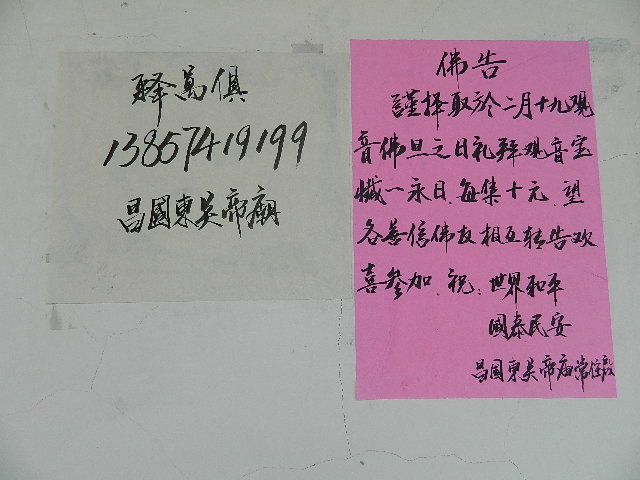 释萬俱
13857419199
昌國東吴帝廟
佛告
謹择取於二月十九观
音佛旦之日礼拜观音宝
忏一永日每集十元.望
各善信佛友相互转告欢
喜參加.祝:世界和平
國泰民安
昌國東吴帝庙常住啟